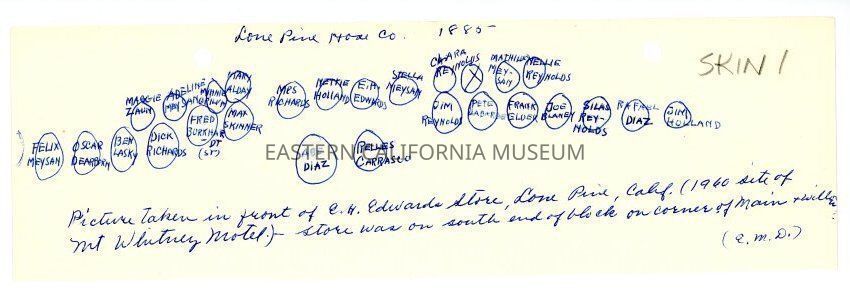 Lone Pine Hose Co. 1885
SKIN 1
CLARA REYNOLDS
MATHILDE MEYSAN
NELLIE REYNOLDS
MAGGIE
ADELINE MEYSAN
MINNIE
MARY ALDAY
MRS RICHARDS
NETTIE HOLLAND
E.H. EDWARDS
STELLA MEYSAN
X
JIM REYNOLDS
PETE
FRANK ELDER
JOE BLANEY
SILAS REYNOLDS
RAFAEL DIAZ
JIM HOLLAND
FELIX MEYSAN
OSCAR DEARBORN
BEN LASKY
DICK RICHARDS
FRED BURKHART
(DT ST)
MAX SKINNER
DIAZ
CARRASCO
EASTERN CALIFORNIA MUSEUM
Picture taken in front of E.H. Edwards Store, Lone Pine, Calif. (1960 site of
Mt Whitney Motel.) - store was on south end of block on corner of Main +
(E.M.D.)